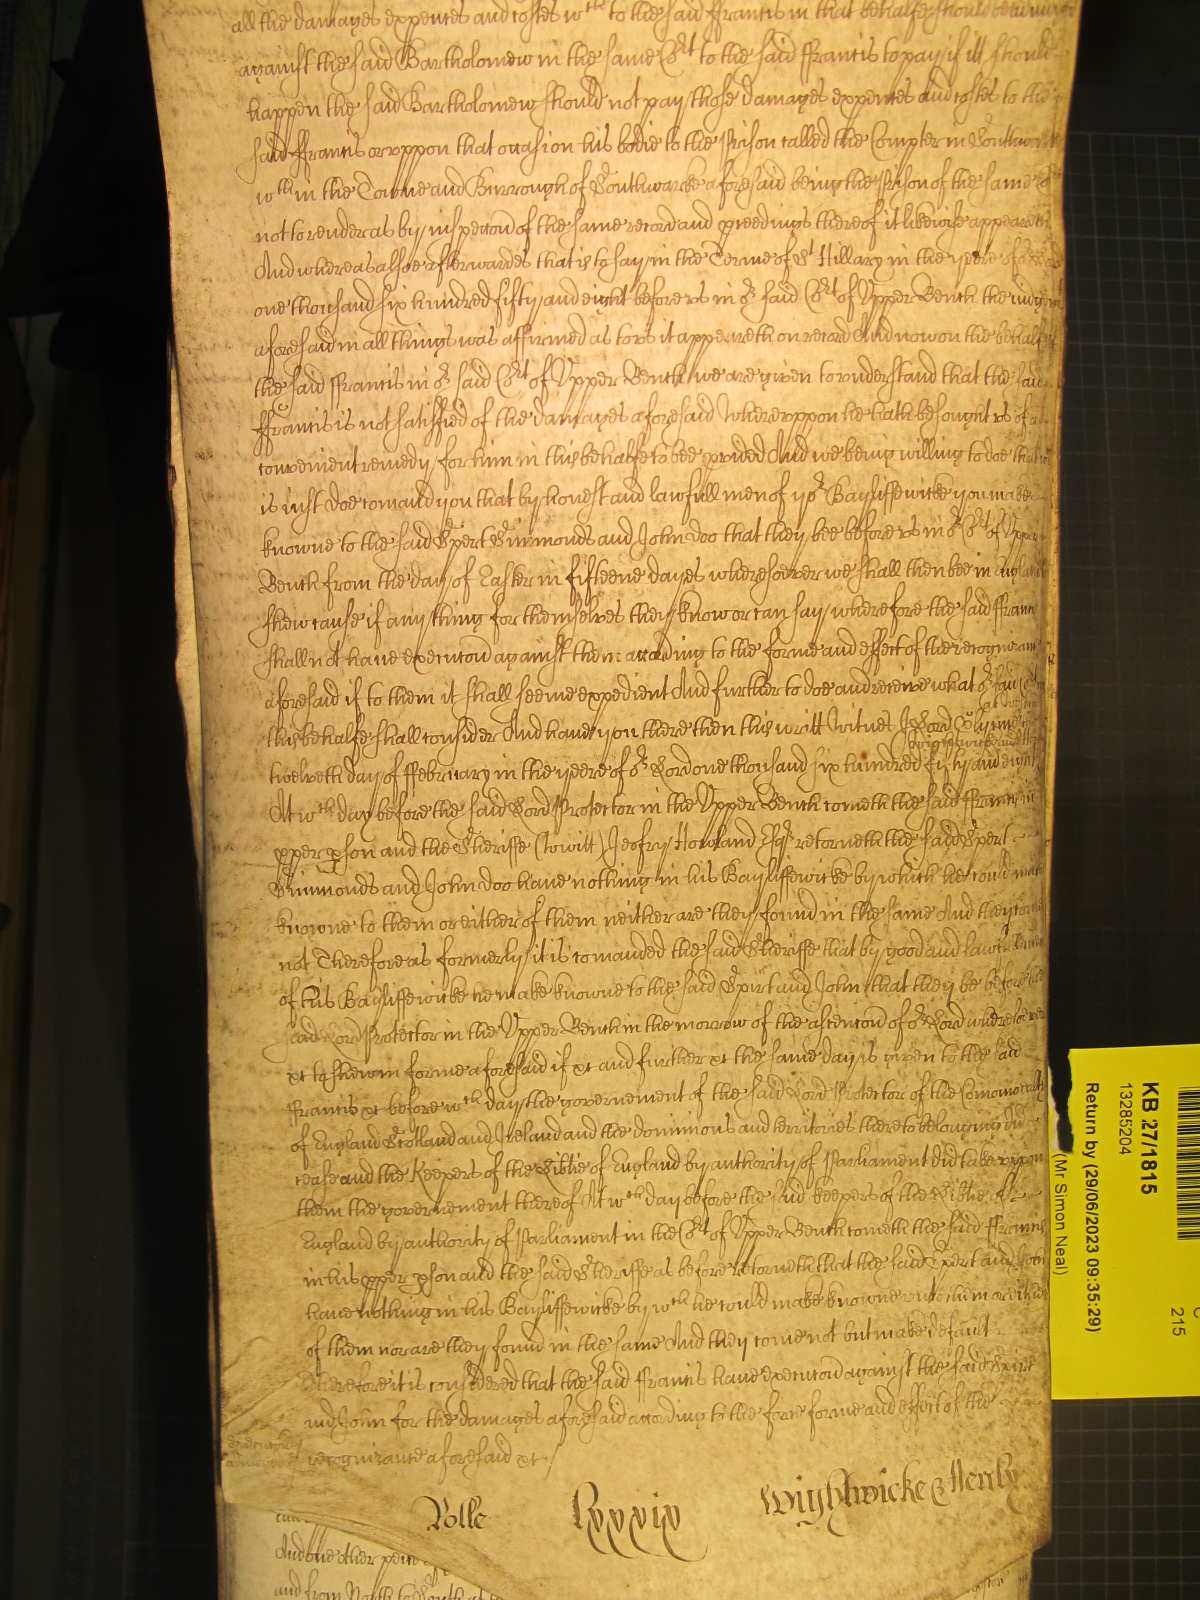 all the damages expences and costes wth to the said ffrancis in that behalfe should be
against the said Bartholomew in the same Cort to the said ffrancis to pay if itt should
happen the said Bartholomew should not pay those damages expences and costes to the
said ffrancis or vppon that occasion his bodie to the Prison called the Compter in Southwarke
wth in the Towne and Burrough of Southwarke aforesaid being the Prison of the same Cort
not to render as by inspeccon of the same record and pceedings thereof it likewise appeareth
And whereas alsoe afterwardes that is to say in the Terme of St Hillary in the yeere of or Lord
one thousand six hundred fifty and eight before vs in or said Cort of Vpper Bench the iudgmt
aforesaid in all things was affirmed as to vs it appeareth on record And now on the behalfe of
the said ffrancis in or said Cort of Vpper Bench we are given to vnderstand that the said
ffrancis is not satisfied of the damages aforesaid Wherevppon he hath besought vs of a
convenient remedy for him in this behalfe to bee pvided And we being willing to doe that wch
is iust Doe comand you that by honest and lawfull men of yor Bayliffewicke you make
knowne to the said Simmonds and John Doo that they bee before vs in or Cort of Vpper
Bench from the day of Easter in fifteene dayes wheresoever we shall then bee in England
shew cause if any thing for themselves they know or can say wherefore the said ffrancis
shall not haue execucon against them according to the forme and effect of the recognizance
aforesaid if to them it shall seeme expedient And further to doe and receive what or said Cort in
this behalfe shall consider And haue you there then this writt Witnes
twelveth day of ffebruary in the yeere of or Lord one thousand six hundred fifty and eight
At wth day before the said Lord Protector in the Vpper Bench cometh the said ffrancis in
pper pson and the Sheriffe (towitt) Jeofry Howland Esqr retorneth the said
Simmonds and John Doo haue nothing in his Bayliffewicke by which he could make
knowne to them or either of them neither are they found in the same And they come
not Therefore as formerly it is comanded the said Sheriffe that by good and lawfull men
of his Bayliffewicke he make knowne to the said and John that they be before the
said Lord Protector in the Vpper Bench in the morrow of the ascencon of or Lord wheresoever
xt to shew in forme aforesaid if xt and further xt the same day is given to the said
ffrancis xt before wth day the governement of the said Lord Protector of the Comonwealth
of England Scotland and Ireland and the dominions and territories thereto belonging did
cease and the Keepers of the Libtie of England by authority of Parliament did take vppon
them the governement thereof At wth day before the said keepers of the Libtie of
England by authority of Parliament in the Cort of Vpper Bench cometh the said ffrancis
in his pper pson and the said Sheriffe as before retorneth that the said and John
haue nothing in his Bayliffewicke by wth he could make knowne vnto them or either
of them nor are they found in the same And they come not but make default
Therefore it is considered that the said ffrancis haue execucon against the said
and John for the damages aforesaid according to the force forme and effect of the
recognizance aforesaid xt
Rolle lxxxix Wightwicke & Henly
And one other peice
and from North to South
KB 27/1815
13285204
Return by (29/06/2023 09:35:29)
(Mr Simon Neal)
215